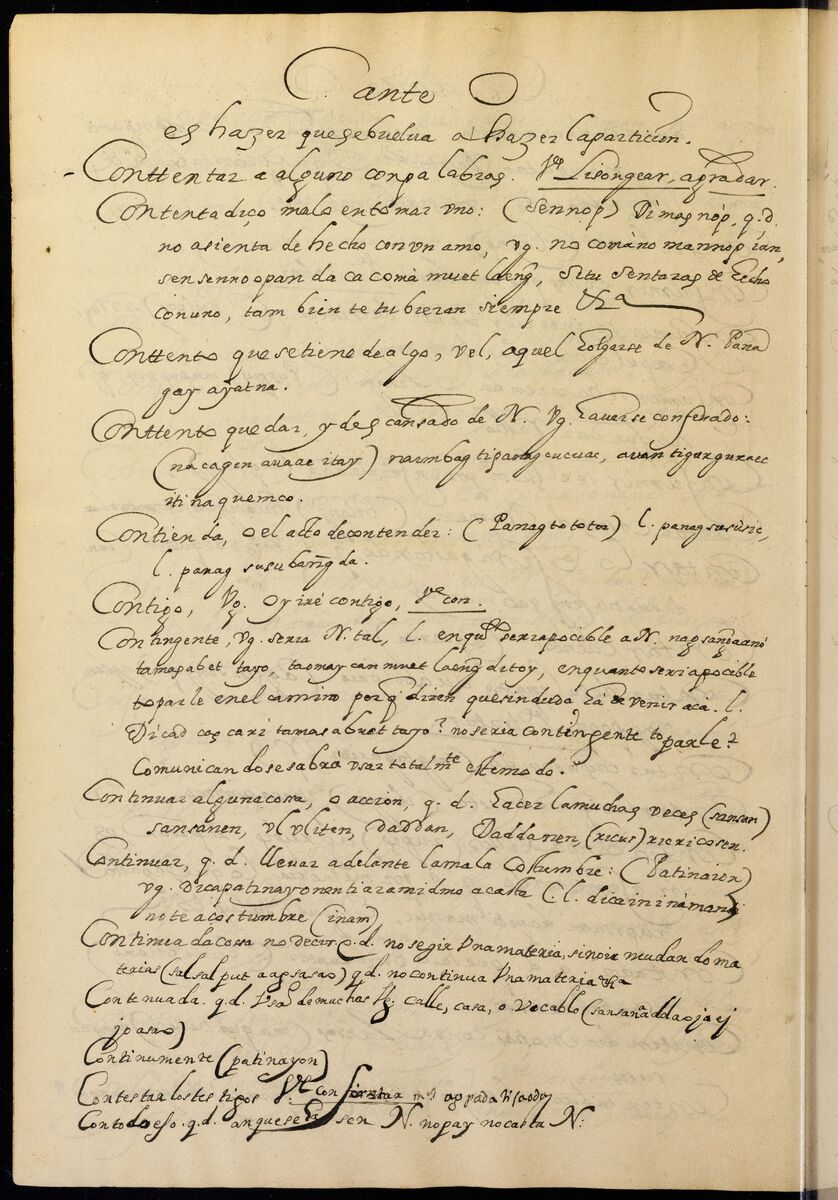 C. ante O
es hazer que se buelua a hazer la particion.
- Conttentar a alguno con palabras. Ve Lisongear, agradar.
Contentadiço malo ento mar vno: (sennop) Vimasnóp, q.d.
no asienta de hecho con vn amo, vg. no comàno mannopian,
sensennoopan da ca comà muet laeng, si tu sentaras de hecho
con uno, tambien te tubieran siempre &ra
Conttento que se tiene de algo, vel, aquel holgarse de N. Pana
gayayatna.
Conttento quedar, y descansado de N. Vg. hauerse confesado:
(nacagin auaae itay) naimbag tipanagcucuae, auan tigurguraec
itinaquemco.
Contienda, o el acto de contender: (Panagtototor) l. panagsusùsic,
l. panag susubang̃da.
Contigo, Vg. oy iré contigo, Ve con.
Contingente, vg. seria N. tal, l. en qto seria pocible a N.
tamasabet tayo, taomay can muet laeng ditoy, en quanto seria pocible
toparle en el camino porq dizen que sin duda ha de venir acà. l.
Dicad cari tamasabuet tayo? no seria contingente toparle?
Comunicandose sabrà vsar totalmte este modo.
Continuar alguna cosa, o accion, q. d. hacer la muchas veces (sansan)
sansanen, vl vliten, daddan, daddanen, (ricus) ricricosen.
Continuar, q. d. llevar adelante la mala Costumbre: (Patinaion)
vg. Dicapatinayonen ti aramidmo a casta C. l. dicaininàmang
no te acostumbre (inam)
Continuada cosa no decir q.d. no segir vna materia, sino ir mudando ma
terias (salsalput a agsasao) qd. no continua vna materia &ra
Contenuada. q.d. Vsada de muchas Vg. calle, casa, o Vocablo (sansanã
joasao)
Continumente (patinayon)
Contestar los testigos Ve
Contodo eso. q.d. anque sea sen N. nopay no casta N: